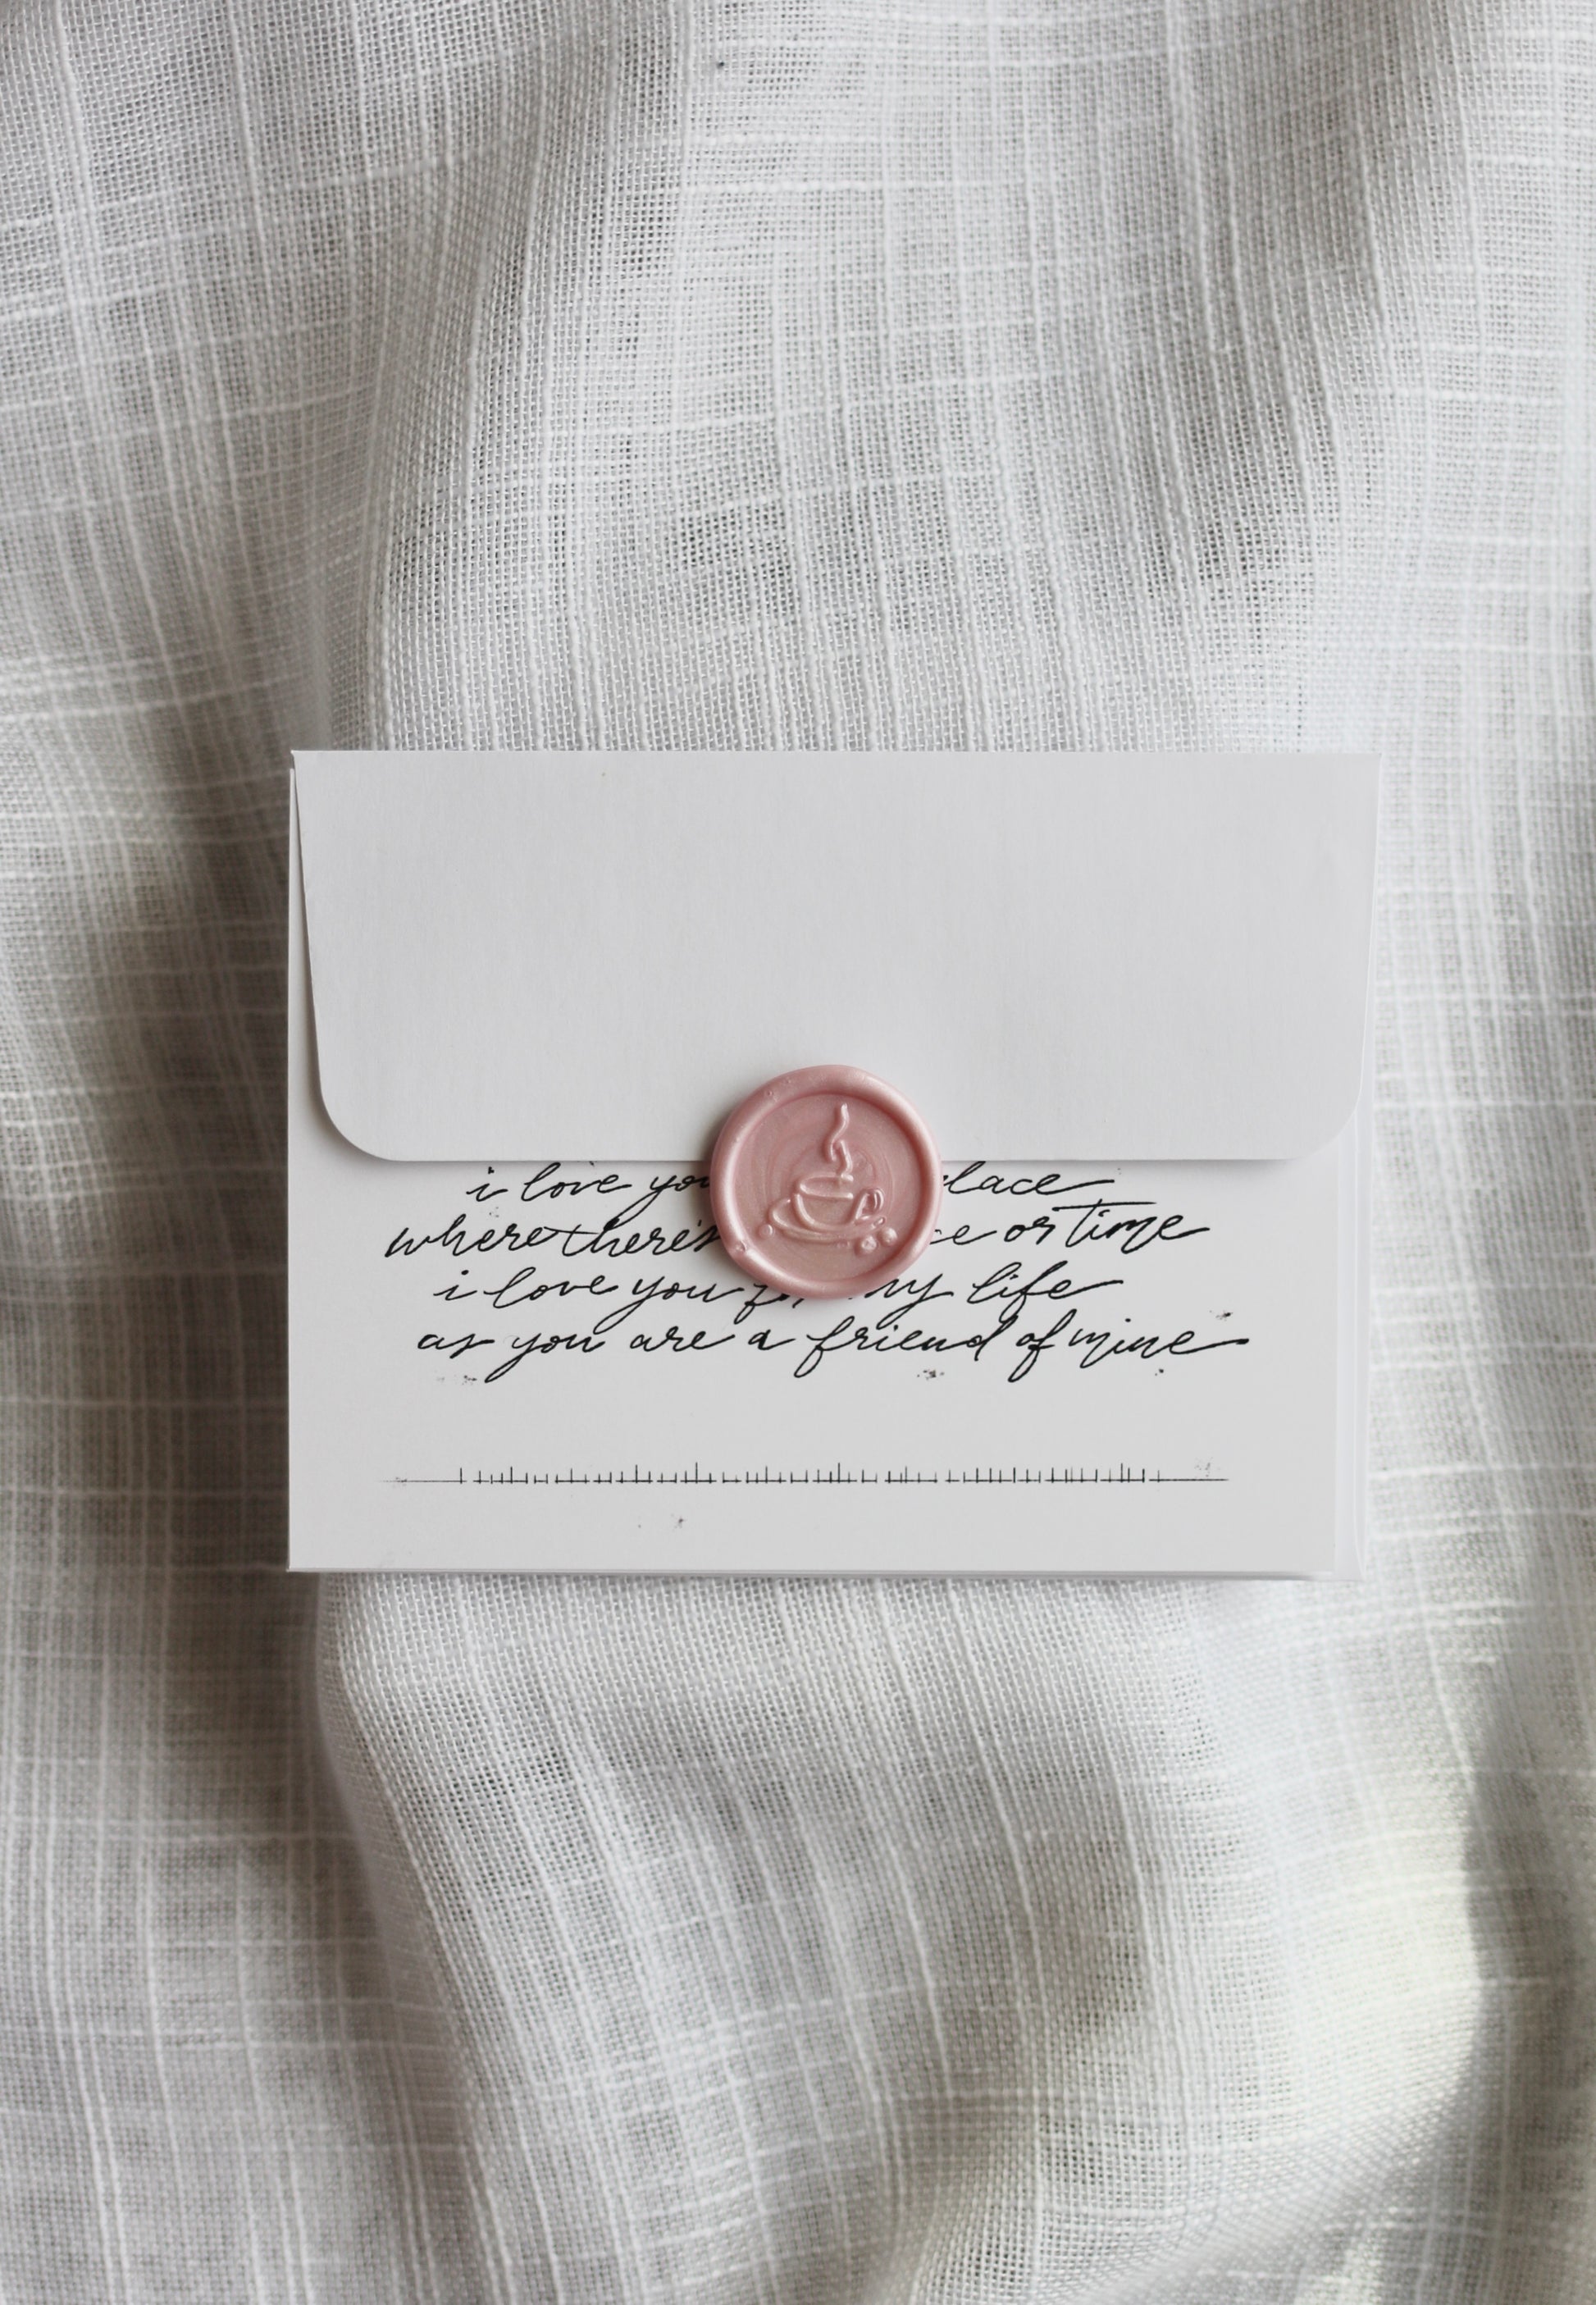 i love you
where there's or time
i love you life
as you are a friend of mine